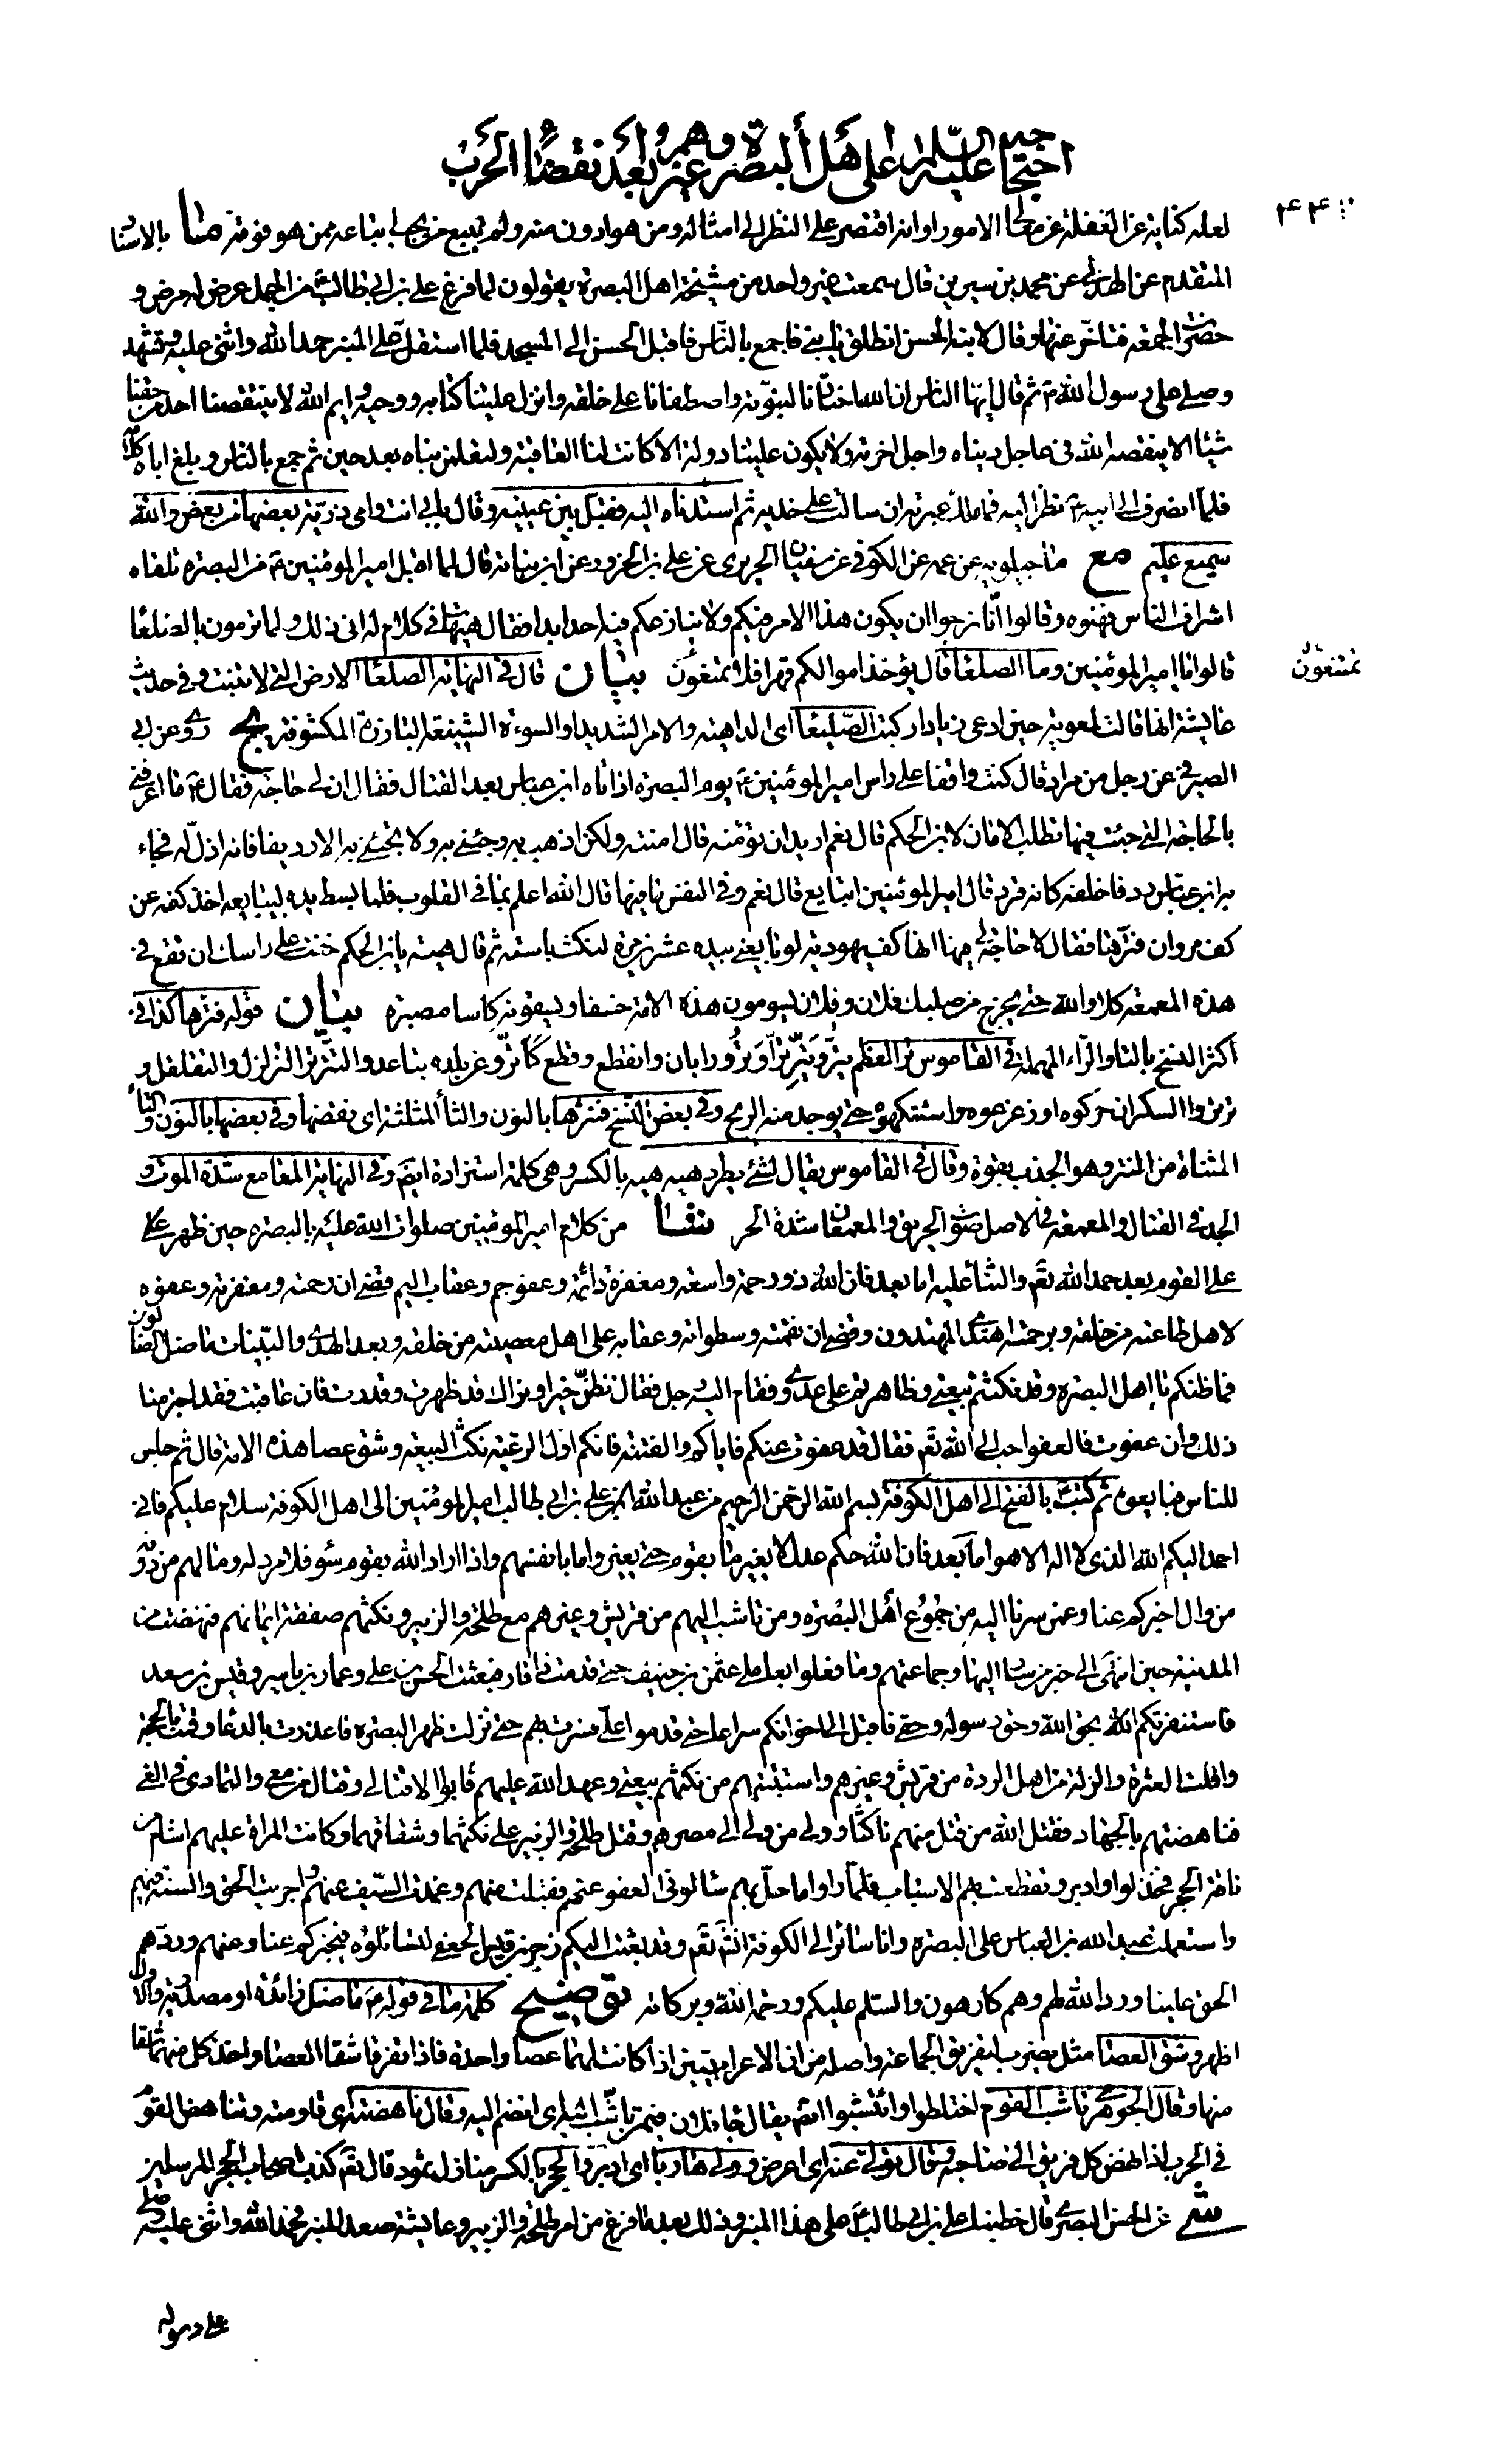 احتجاجه عليه السلام على اهل البصرة وغيرهم بعد انقضاء الحرب
۴۴۰
لعله كناية عن الغفلة عن معالي الامور او انه اقتصر على النظر الى امثاله ومن هو ادون منه ولم يتبع من يجب اتباعه ممن هو فوقه ما بالاسناد
المتقدم عن الهذلي عن محمد بن سيرين قال سمعت غير واحد من مشيخة اهل البصرة يقولون لما فرغ علي بن ابي طالب ع من الجمل عرض له مرض و
حضرت الجمعة فتأخر عنها وقال لابنه الحسن انطلق يا بني فاجمع بالناس فاقبل الحسن الى المسجد فلما استقل على المنبر حمد الله واثنى عليه وتشهد
وصلى على رسول الله ص ثم قال ايها الناس ان الله اختارنا لنبوته واصطفانا على خلقه وانزل علينا كتابه ووحيه وايم الله لا ينتقصنا احد من حقنا
شيئا الا ينقصه الله في عاجل دنياه واجل اخرته ولا يكون علينا دولة الا كانت لنا العاقبة ولتعلمن نباه بعد حين ثم جمع بالناس وبلغ اباه كلامه
فلما انصرف الى ابيه ع نظر اليه فما ملك عبرته ان سالت على خديه ثم استدناه اليه فقبل بين عينيه وقال بابي انت وامي ذرية بعضها من بعض والله
سميع عليم مع ماجيلويه عن عمه عن الكوفي عن سفيان الحريري عن علي بن الحزور عن ابن نباتة قال لما اقبل امير المؤمنين ع من البصرة تلقاه
اشراف الناس فهنوه وقالوا انا نرجوا ان يكون هذا الامر فيكم ولا ينازعكم فيه احد ابدا فقال هيهات في كلام له انى ذلك ولما ترمون بالصلعا
قالوا يا امير المؤمنين وما الصلعا قال يؤخذ اموالكم قهرا فلا تمنعون بيان قال في النهاية الصلعا الارض التي لا تنبت وفي حديث
تمتنعون ل
عايشة انها قالت لمعوية حين ادعى زيادا ركبت الصليعا اى الداهية والامر الشديد او السوءة الشنيعة البارزة المكشوفة يج روى عن ابى
الصيرفي عن رجل من مراد قال كنت واقفا على راس امير المؤمنين ع يوم البصرة اذ اتاه ابن عباس بعد القتال فقال ان لي حاجة فقال ع ما اعرفني
بالحاجة التي جئت فيها تطلب الامان لابن الحكم قال نعم اريد ان تؤمنه قال امنته ولكن اذهب به وجئني به ولا تجئني به الا رديفا فانه اذل له فجاء
به ابن عباس ردفا خلفه كانه قرد قال امير المؤمنين اتبايع قال نعم وفي النفس ما فيها قال الله اعلم بما في القلوب فلما بسط يده ليبايعه اخذ كفه عن
كف مروان فترها فقال لا حاجة لي فيها انها كف يهودية لو بايعني بيده عشرين مرة لنكث باسته ثم قال هيه يا بن الحكم خفت على راسك ان تقع في
هذه المعمعة كلا والله حتى يخرج من صلبك فلان وفلان يسومون هذه الامة خسفا ويسقونه كاسا مصبرة بيان قوله فترها كذا في
اكثر النسخ بالتا والراء المهملة في القاموس تر العظم يتر ويتر ترا وترورا بان وانقطع وقطع كاتر وعن بلده تباعد والتترتر التزلزل والتقلقل و
ترتروا السكران حركوه او زعزعوه واستنكهوه حتى يوجد منه الريح وفي بعض النسخ فنثرها بالنون والثا المثلثة اى نفضها وفي بعضها بالنون والتا
المثناة من النتر وهو الجذب بقوة وقال في القاموس يقال لشئ يطرد هيه هيه بالكسر وهي كلمة استزادة ايضا وفي النهاية المعامع شدة الموت و
الجد في القتال والمعمعة في الاصل صوت الحريق والمعمعان شدة الحر شا من كلام امير المؤمنين صلوات الله عليه بالبصرة حين ظهر على
على القوم بعد حمد الله تع والثنا عليه اما بعد فان الله ذو رحمة واسعة ومغفرة دائمة وعفو جم وعقاب اليم قضى ان رحمته ومغفرته وعفوه
لاهل طاعته من خلقه وبرحمته اهتدى المهتدون وقضى ان نقمته وسطوته وعقابه على اهل معصيته من خلقه وبعد الهدى والبينات ما ضل الضالون
فما ظنكم يا اهل البصرة وقد نكثتم بيعتي وظاهرتم على عدوى فقام اليه رجل فقال نظن خيرا ونراك قد ظهرت وقدرت فان عاقبت فقد اجترمنا
ذلك وان عفوت فالعفو احب الى الله تع فقال قد عفوت عنكم فاياكم والفتنة فانكم اول الرعية نكث البيعة وشق عصا هذه الامة قال ثم جلس
للناس فبايعوه ثم كتب ع بالفتح الى اهل الكوفة بسم الله الرحمن الرحيم من عبد الله علي بن ابي طالب امير المؤمنين الى اهل الكوفة سلام عليكم فاني
احمد اليكم الله الذي لا اله الا هو اما بعد فان الله حكم عدل لا يغير ما بقوم حتى يغيروا ما بانفسهم واذا اراد الله بقوم سوء فلا مرد له وما لهم من دونه
من وال اخبركم عنا وعمن سرنا اليه من جموع اهل البصرة ومن تاشب اليهم من قريش وغيرهم مع طلحة والزبير ونكثهم صفقة ايمانهم فنهضت من
المدينة حين انتهى الى خبر من سار اليها وجماعتهم وما فعلوا بعاملي عثمن بن حنيف حتى قدمت ذا قار فبعثت الحسن بن علي وعمار بن ياسر وقيس بن سعد
فاستنفرتكم بحق الله وحق رسوله وحقي فاقبل الى اخوانكم سراعا حتى قدموا علي فسرت بهم حتى نزلت ظهر البصرة فاعذرت بالدعا وقمت بالحجة
واقلت العثرة والزلة من اهل الردة من قريش وغيرهم واستتبتهم من نكثهم بيعتي وعهد الله عليهم فابوا الا قتالي وقتال من معي والتمادى في الغي
فناهضتهم بالجهاد فقتل الله من قتل منهم ناكثا وولى من ولى الى مصرهم وقتل طلحة والزبير على نكثهما وشقاقهما وكانت المراة عليهم اشام من
ناقة الحجر فخذلوا وادبروا وتقطعت بهم الاسباب فلما راوا ما حل بهم سالوني العفو عنهم فقبلت منهم وغمدت السيف عنهم واجريت الحق والسنة فيهم
واستعملت عبد الله بن العباس على البصرة وانا سائر الى الكوفة انشا الله تع وقد بعثت اليكم زحر بن قيس الجعفي لتسائلوه فيخبركم عنا وعنهم وردهم
الحق علينا ورد الله لهم وهم كارهون والسلم عليكم ورحمة الله وبركاته توضيح كلمة ما في قوله ع ما ضل زائدة او مصدرية والاول
اظهر وشق العصا مثل يضرب لتفريق الجماعة واصله من ان الاعرابيين اذا كانت لهما عصا واحدة فاذا تفرقا شقا العصا واخذ كل منهما شقا
منها وقال الجوهرى تاشب القوم اختلطوا وائتشبوا ايضا يقال جا فلان فيمن تاشب اليه اى انضم اليه وقال ناهضته اى قاومته وتناهض القوم
في الحرب اذا نهض كل فريق الى صاحبه وقال تولى عنه اى اعرض وولى هاربا اى ادبر والحجر بالكسر منازل ثمود قال تع كذب اصحاب الحجر المرسلين
شى عن الحسن البصرى قال خطبنا علي بن ابي طالب ع على هذا المنبر وذلك بعد ما فرغ من امر طلحة والزبير وعايشة صعد المنبر فحمد الله واثنى عليه وصلى
على رسوله